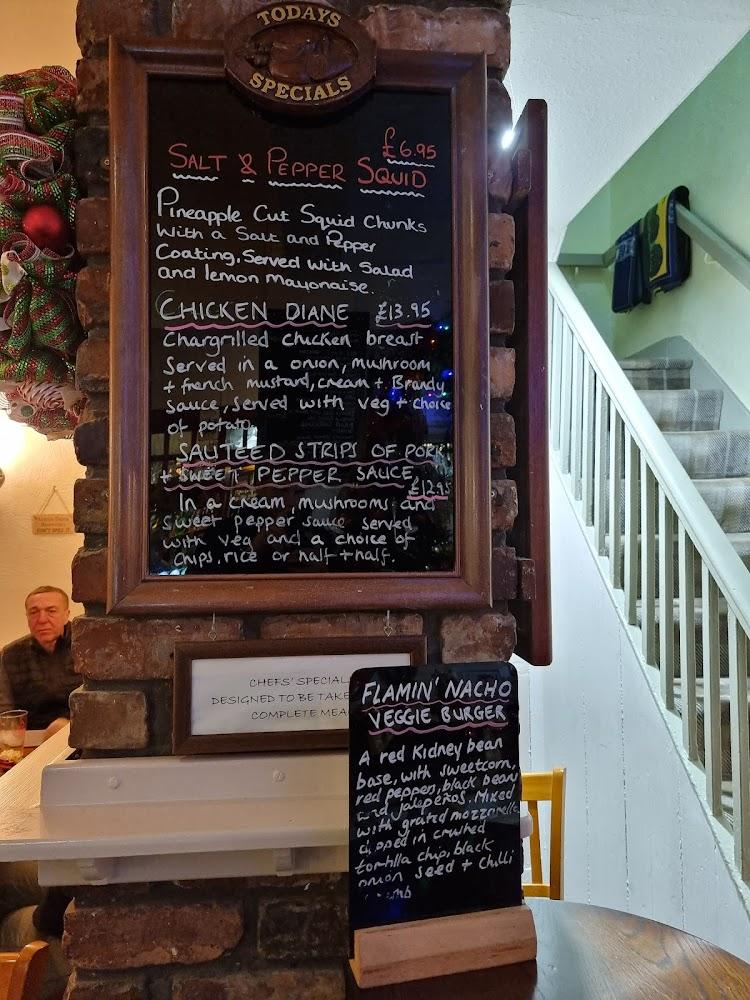 TODAYS
SPECIALS
£6.95
SALT & PEPPER SQUID
Pineapple Cut Squid Chunks
With a Salt and Pepper
Coating, Served With Salad
and lemon Mayonaise.
CHICKEN DIANE £13.95
Chargrilled chicken breast
Served in a onion, mushroom
+ french mustard, cream + Brandy
Sauce, Served with veg + choice
of potato
SAUTEED STRIPS OF PORK
+ SWEET PEPPER SAUCE
£12.95
In a cream, mushrooms and
Sweet pepper sauce served
with veg and a choice of
chips, rice or half + half.
CHEFS' SPECIAL
DESIGNED TO BE TAKE
COMPLETE MEA
FLAMIN' NACHO
VEGGIE BURGER
A red Kidney bean
base, with sweetcorn,
red peppers, black bean
and jalepeños. Mixed
with grated mozzarella
dipped in crushed
tortilla chip, black
onion seed + chilli